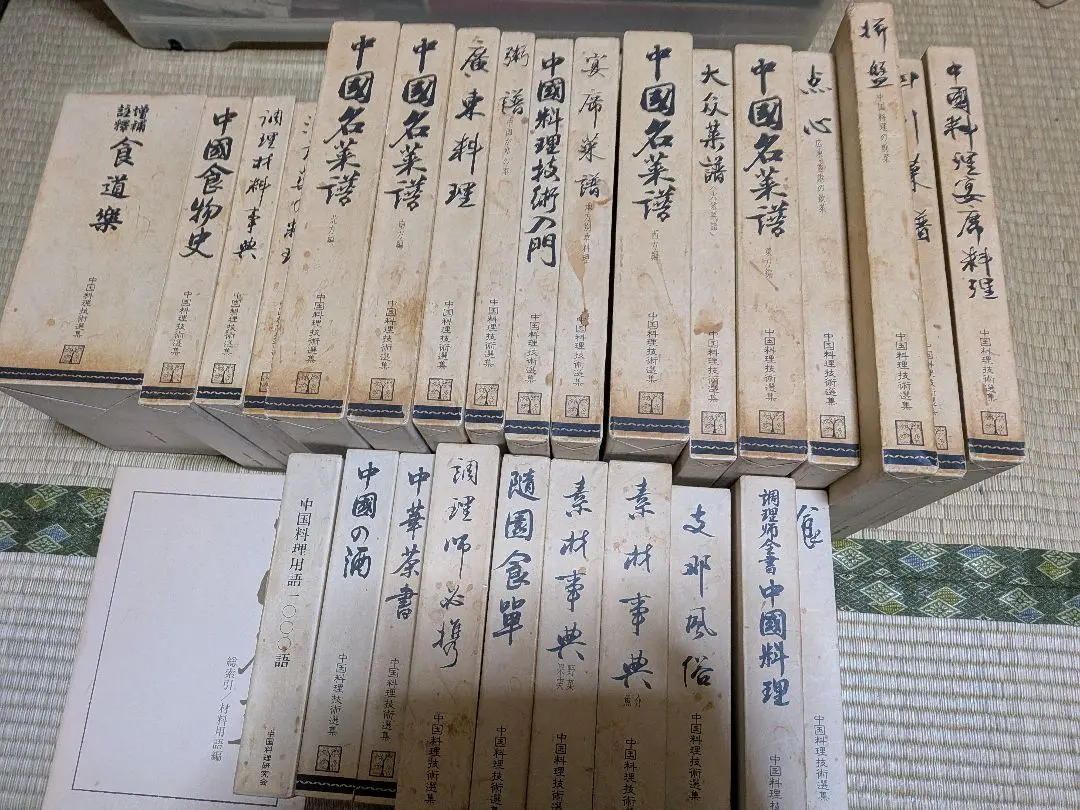 増補
註釋
食道樂
中国料理技術選集
中國食物史
中国料理技術選集
調理材料事典
中国料理技術選集
中國名菜谱
北方編
中国料理技術選集
中國名菜谱
南方編
中国料理技術選集
廣東料理
中国料理技術選集
粥譜
中国料理技術選集
中國料理技術入門
中国料理技術選集
宴席菜譜
中国料理技術選集
中國名菜谱
西方編
中国料理技術選集
大众菜譜
中国料理技術選集
中國名菜谱
東方編
中国料理技術選集
点心
中国料理技術選集
拼盤
中国料理の前菜
中国料理技術選集
中国料理技術選集
中國料理宴席料理
中国料理技術選集
総索引/材料用語編
中国料理用語一〇〇〇語
中国料理研究会
中國の酒
中国料理技術選集
中華茶書
中国料理技術選集
調理师必携
中国料理技術選集
随園食單
中国料理技術選集
素材事典
野菜
果実
中国料理技術選集
素材事典
魚介
中国料理技術選集
支那風俗
中国料理技術選集
調理师全書
中國料理
中国料理技術選集
食
中国料理技術選集